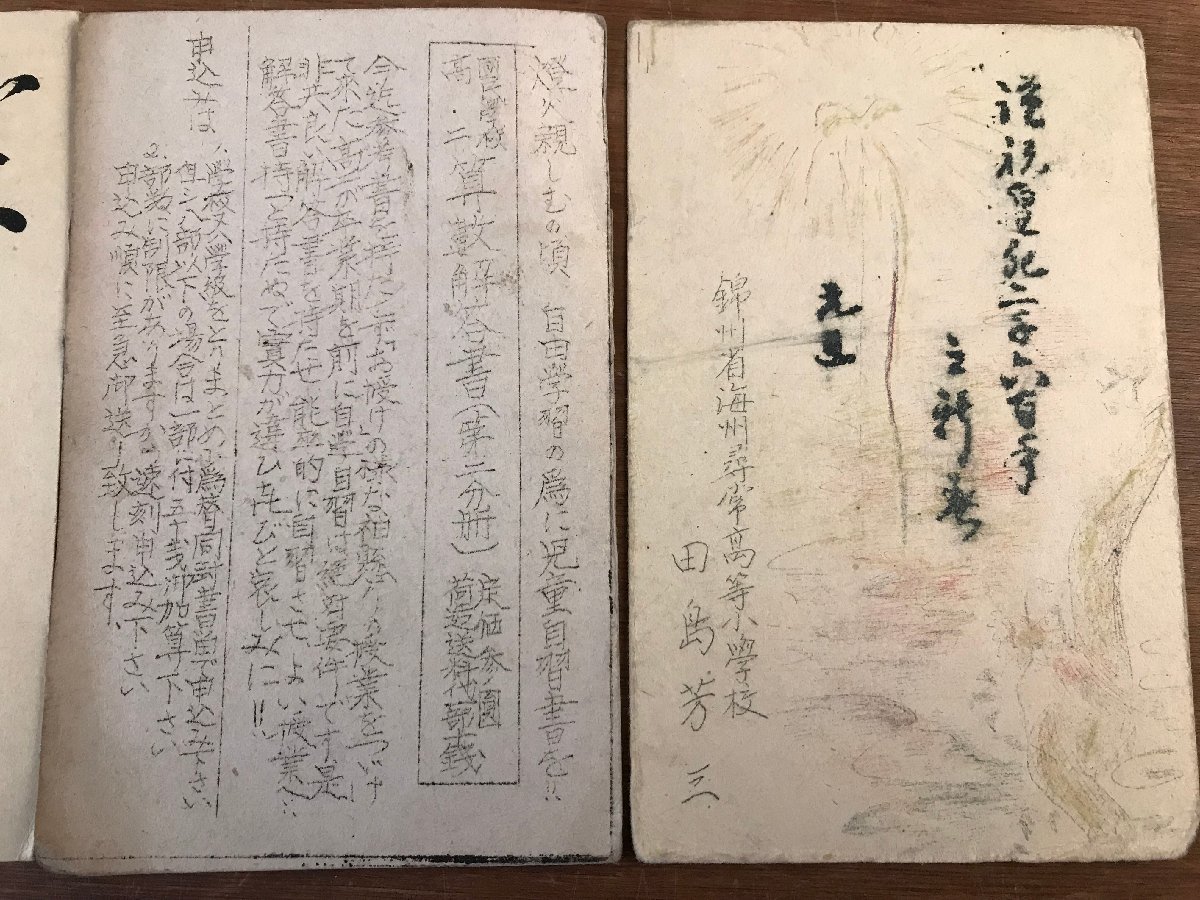 燈火親しむの頃　自由学習の為に児童自習書を!!
國民学校
高二算数解答書(第二分冊)
定価参圓
荷造送料代部十銭
今迄参考書を持たず「お授け」の様な
授業をつゞけ
て来た
卒業期を前に自学自習は絶対要件です是
非共良い解答書を持たせ能率的に自習させてよい授業へ
解答書持つと持たぬで實力が違ひ喜びと哀しみに!!
申込は
1、學校又学級をとりまとめ為替同封書留で申込み下さい
但シ八部以下の場合は一部に付五十銭御加算下さい
2、部数に制限がありますから遠刻申込み下さい
申込み順に至急御送り致します、
謹祝皇紀二千六百年
之新春
元旦
錦州省海州尋常高等小學校
田島芳三